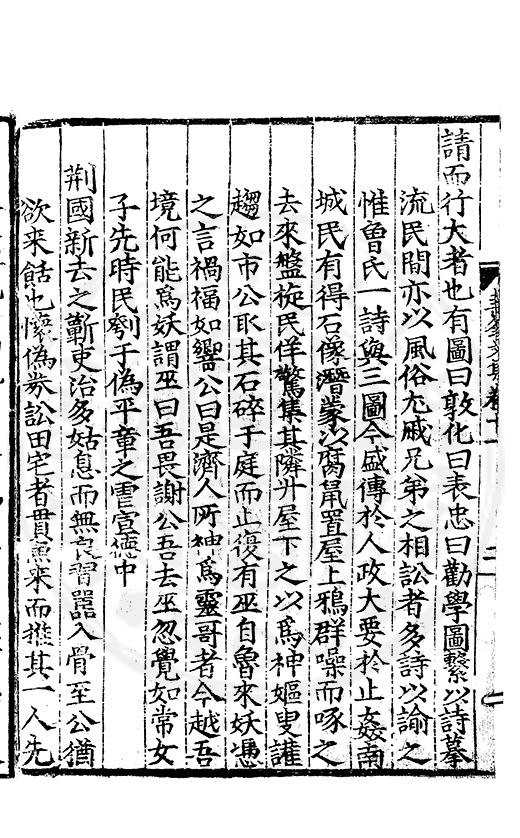 請而行大者也有圖曰敦化曰表忠曰勸學圖繫以詩摹
流民間亦以風俗尤戚兄弟之相訟者多詩以諭之
惟魯氏一詩與三圖今盛傳於人政大要於止姦南
城民有得石像潛蒙以腐鼠置屋上鴉群噪而啄之
去來盤旋民佯驚集其隣廾屋下之以爲神嫗叟讙
趨如市公取其石碎于庭而止復有巫自魯來妖憑
之言禍福如響公曰是濟人所神爲靈哥者今越吾
境何能爲妖謂巫曰吾畏謝公吾去巫忽覺如常女
子先時民刳于偽平章之霅宣德中
荆國新去之蘄吏治多姑息而無良習嚚入骨至公猶
欲來餂也懷偽券訟田宅者貫魚來而摧其一人先